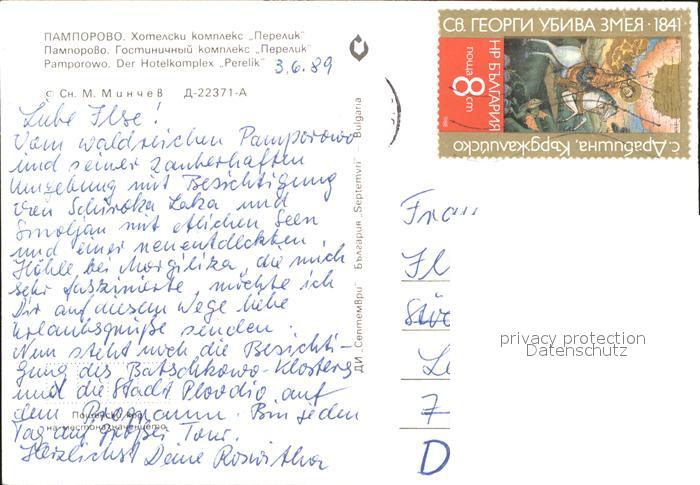 ПАМПОРОВО. Хотелски комплекс „Перелик"
Пампорово. Гостиничный комплекс „Перелик"
Pamporowo. Der Hotelkomplex „Perelik"
3.6.89
© Сн. М. Минчев Д-22371-А
Liebe Ilse!
Vom waldreichen Pamporowo
und seiner zauberhaften
Umgebung mit Besichtigung
von Schiroka Laka und
Smoljan mit etlichen Seen
und einer neuentdeckten
Höhle bei Mogiliza, die mich
sehr faszinierte, möchte ich
Dir auf diesem Wege liebe
Urlaubsgrüße senden.
Nun steht noch die Besichti-
gung des Batschkowo-Klosters
und die Stadt Plovdiv auf
dem Programm. Bin jeden
Tag auf großer Tour.
Herzlichst Deine Roswitha
Пощенски код
на местоназначението
ДИ „Септември" България „Septemvri" Bulgaria
СВ. ГЕОРГИ УБИВА ЗМЕЯ · 1841
НР БЪЛГАРИЯ
поща 8 ст
с. Драбишна, Кърджалийско
Frau
Il
Le
7
D
privacy protection
Datenschutz